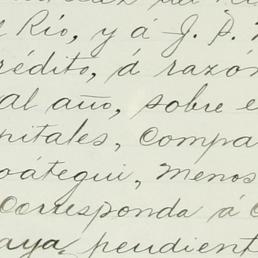 l Río, y á J. P.
rédito, á razón
al año, sobre e
pitales, Compa
oátegui, menos
Corresponda á C
aya, pendient